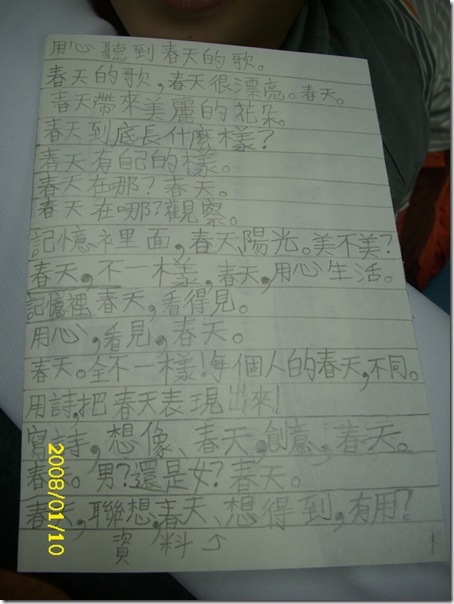 用心聽到春天的歌。
春天的歌,春天很漂亮。春天。
春天帶來美麗的花朵。
春天到底長什麼樣?
春天有自己的樣。
春天在哪?春天。
春天在哪?觀察。
記憶裡面,春天、陽光。美不美?
春天,不一樣,春天,用心生活。
記憶裡春天,看得見。
用心,看見,春天。
春天。全不一樣!每個人的春天,不同。
用詩,把春天表現出來!
寫詩,想像、春天,創意,春天。
春天。男?還是女?春天。
春天,聯想,春天、想得到,有用?
資料
2008/01/10